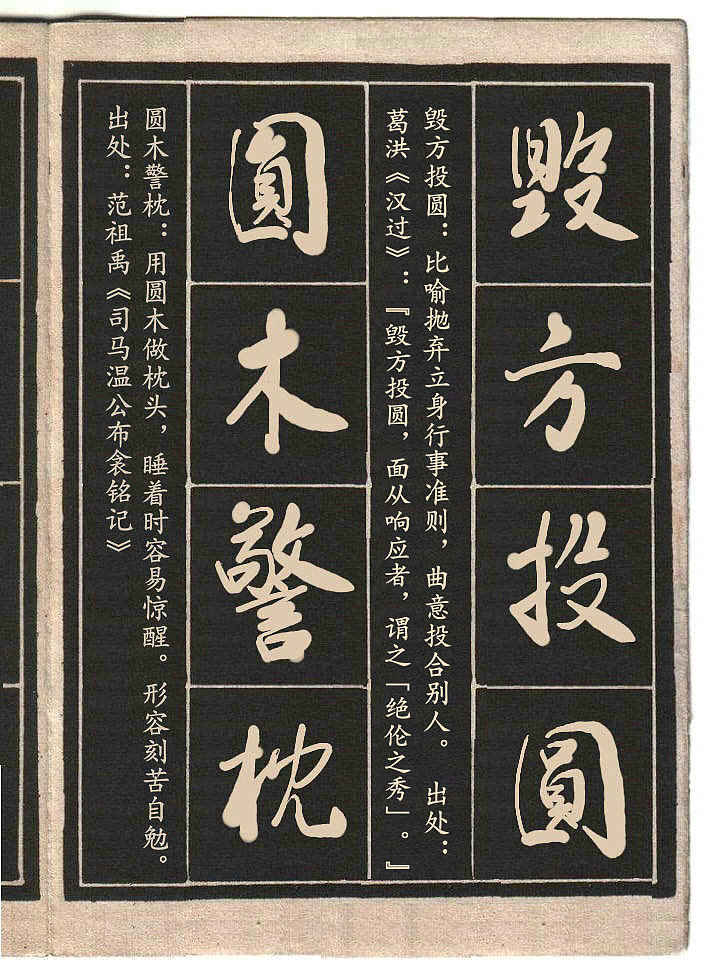 毁方投圓
毁方投圆：比喻抛弃立身行事准则，曲意投合别人。 出处：
葛洪《汉过》：『毁方投圆，面从响应者，谓之「绝伦之秀」。』
圓木警枕
圆木警枕：用圆木做枕头，睡着时容易惊醒。形容刻苦自勉。
出处：范祖禹《司马温公布衾铭记》